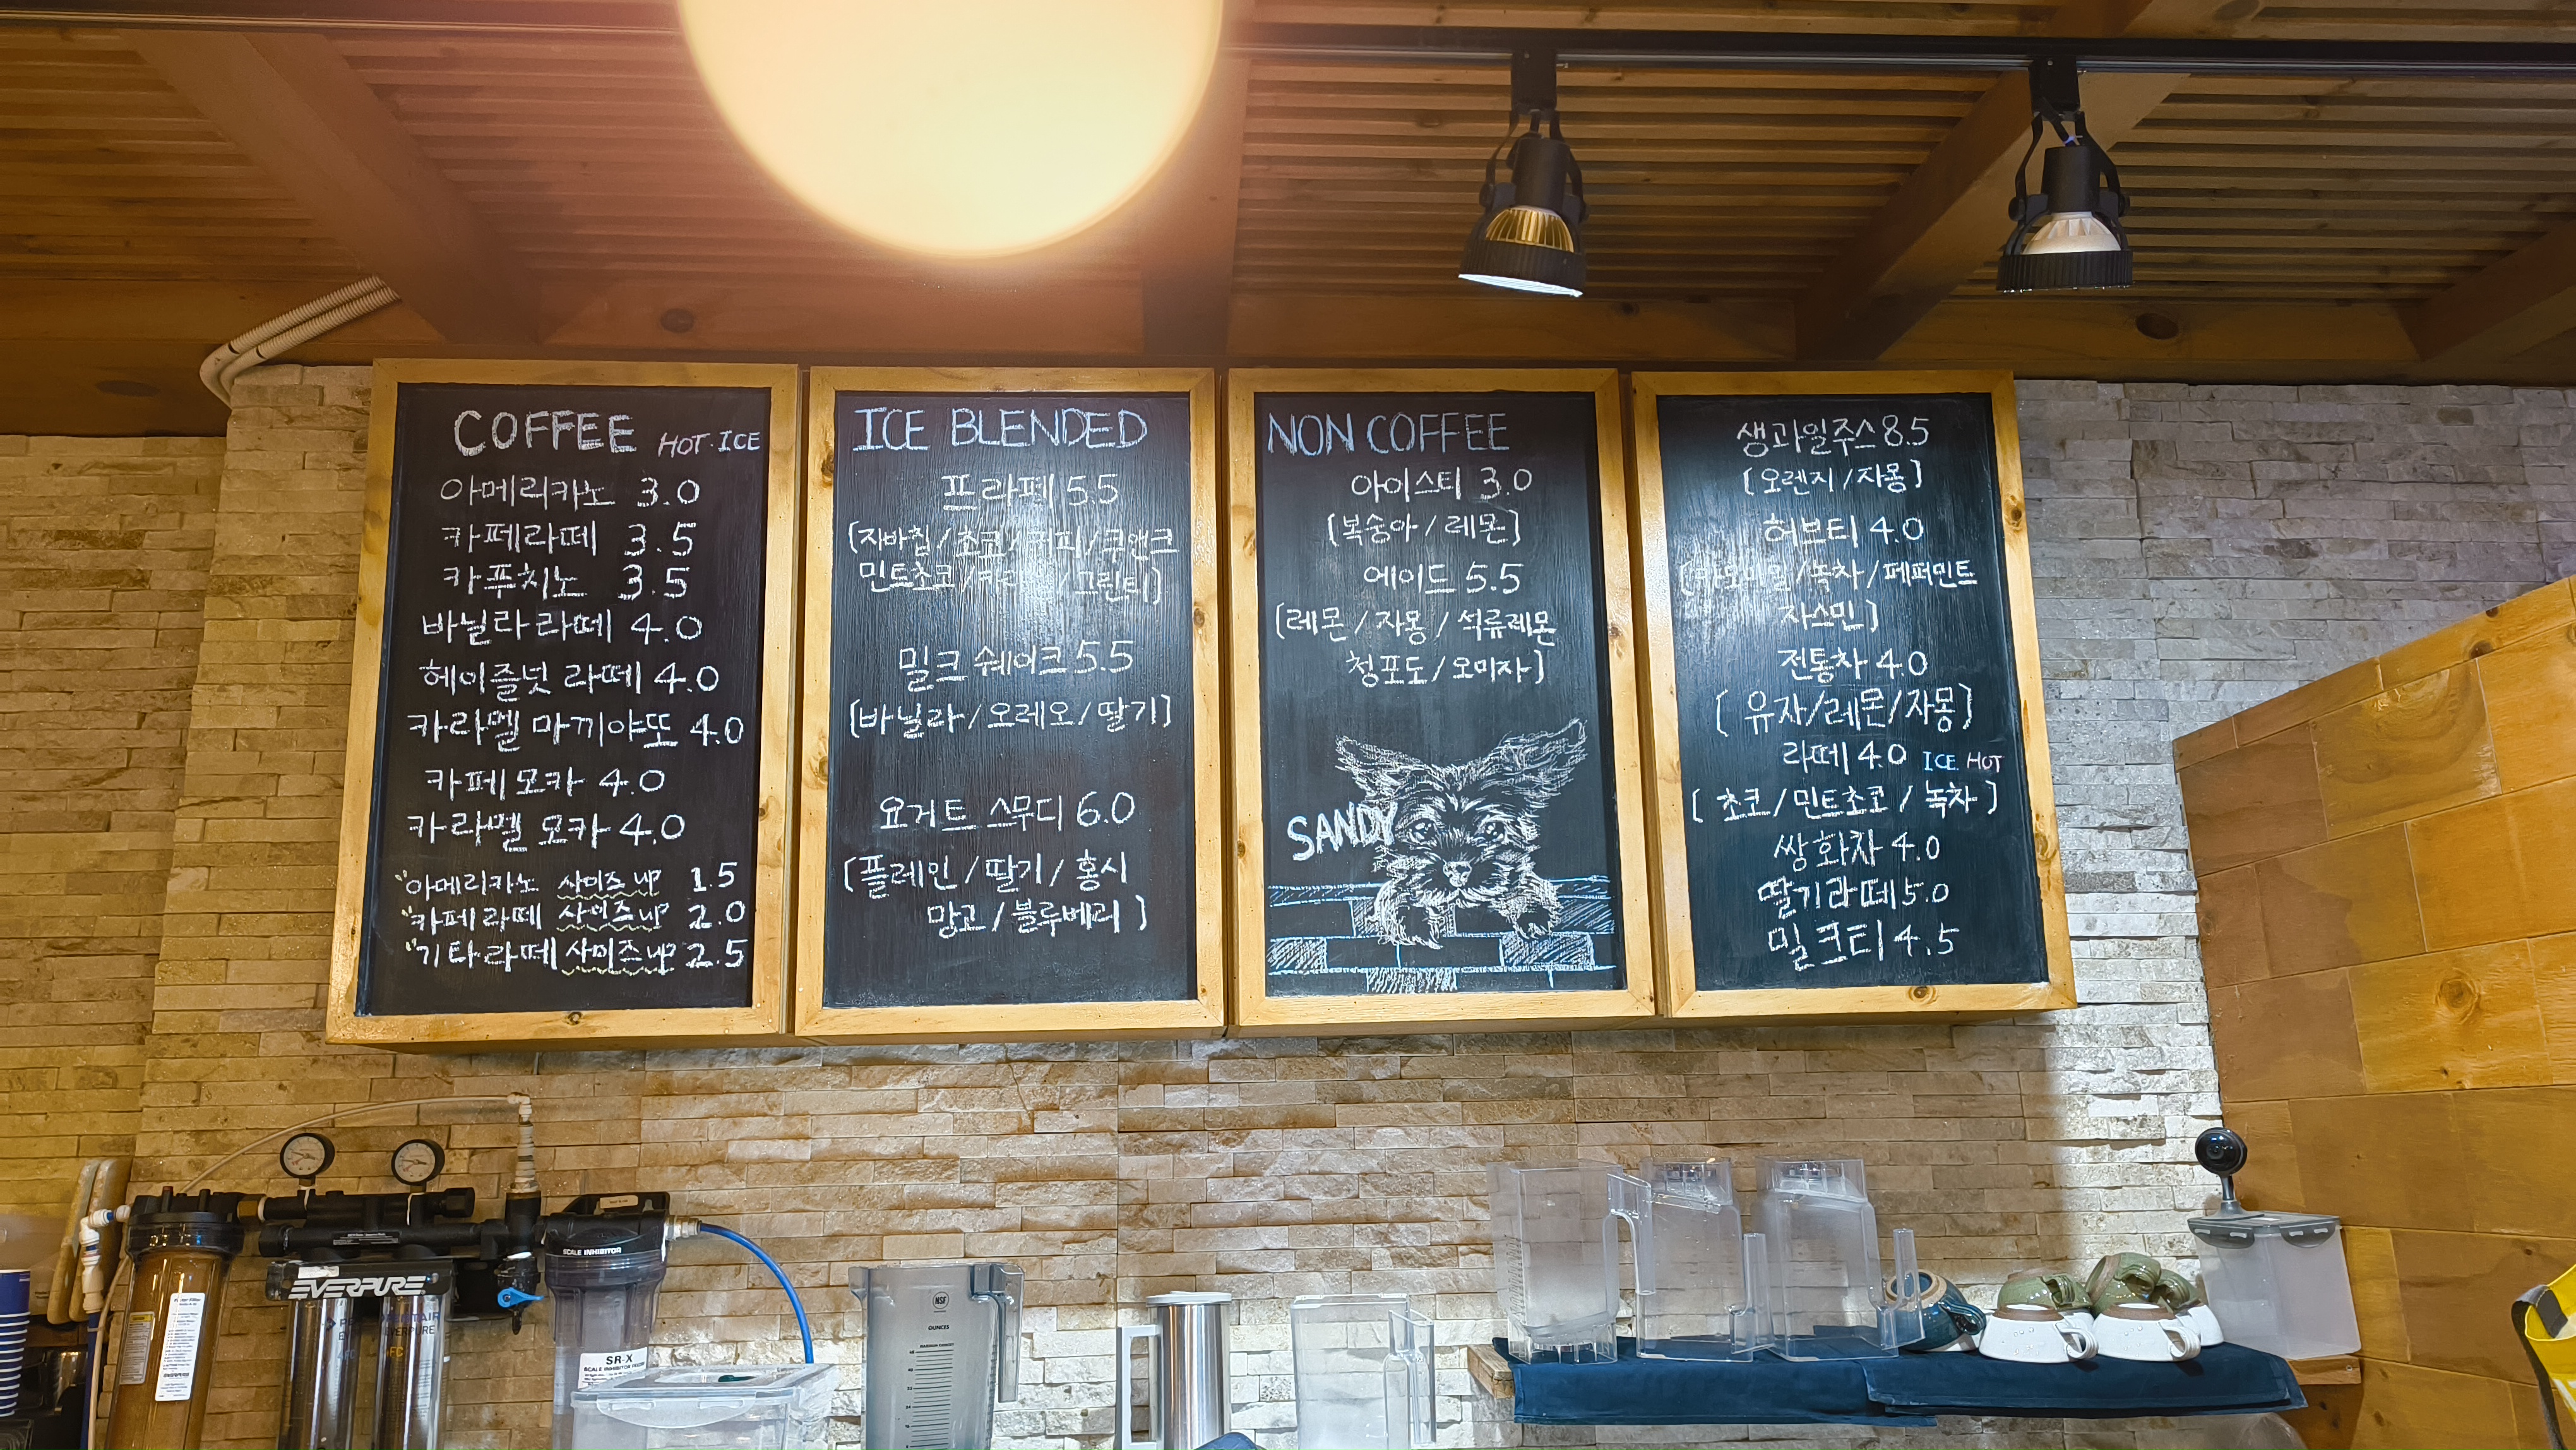 COFFEE HOT·ICE
아메리카노 3.0
카페라떼 3.5
카푸치노 3.5
바닐라라떼 4.0
헤이즐넛 라떼 4.0
카라멜 마끼야또 4.0
카페모카 4.0
카라멜 모카 4.0
"아메리카노 사이즈up 1.5
"카페라떼 사이즈up 2.0
"기타라떼 사이즈up 2.5
ICE BLENDED
프라페 5.5
[자바칩/초코/커피/쿠앤크
민트초코/ /그린티]
밀크쉐이크 5.5
[바닐라/오레오/딸기]
요거트 스무디 6.0
(플레인/딸기/홍시
망고/블루베리)
NON COFFEE
아이스티 3.0
[복숭아/레몬]
에이드 5.5
[레몬/자몽/석류레몬
청포도/오미자]
SANDY
생과일주스 8.5
[오렌지/자몽]
허브티 4.0
[카모마일/녹차/페퍼민트
자스민]
전통차 4.0
[유자/레몬/자몽]
라떼 4.0 ICE HOT
[초코/민트초코/녹차]
쌍화차 4.0
딸기라떼 5.0
밀크티 4.5
EVERPURE
SCALE INHIBITOR
SR-X
SCALE INHIBITOR FEEDER
NSF
OUNCES